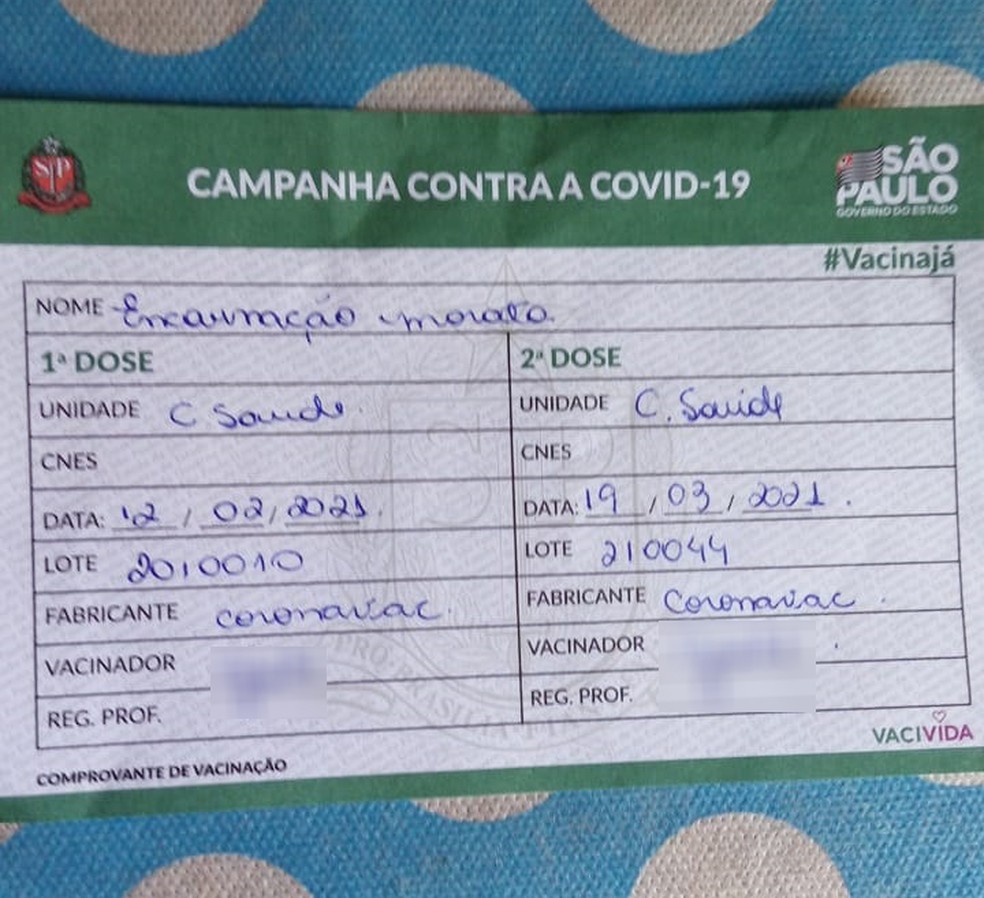 SP
CAMPANHA CONTRA A COVID-19
SÃO PAULO
GOVERNO DO ESTADO
#Vacinajá
NOME Encarnação morato
1ª DOSE 2ª DOSE
UNIDADE C Saude UNIDADE C. Saúde
CNES CNES
DATA: 12 / 02 / 2021 DATA: 19 / 03 / 2021
LOTE 2010010 LOTE 210044
FABRICANTE coronavac FABRICANTE Coronavac
VACINADOR VACINADOR
REG. PROF. REG. PROF.
VACIVIDA
COMPROVANTE DE VACINAÇÃO